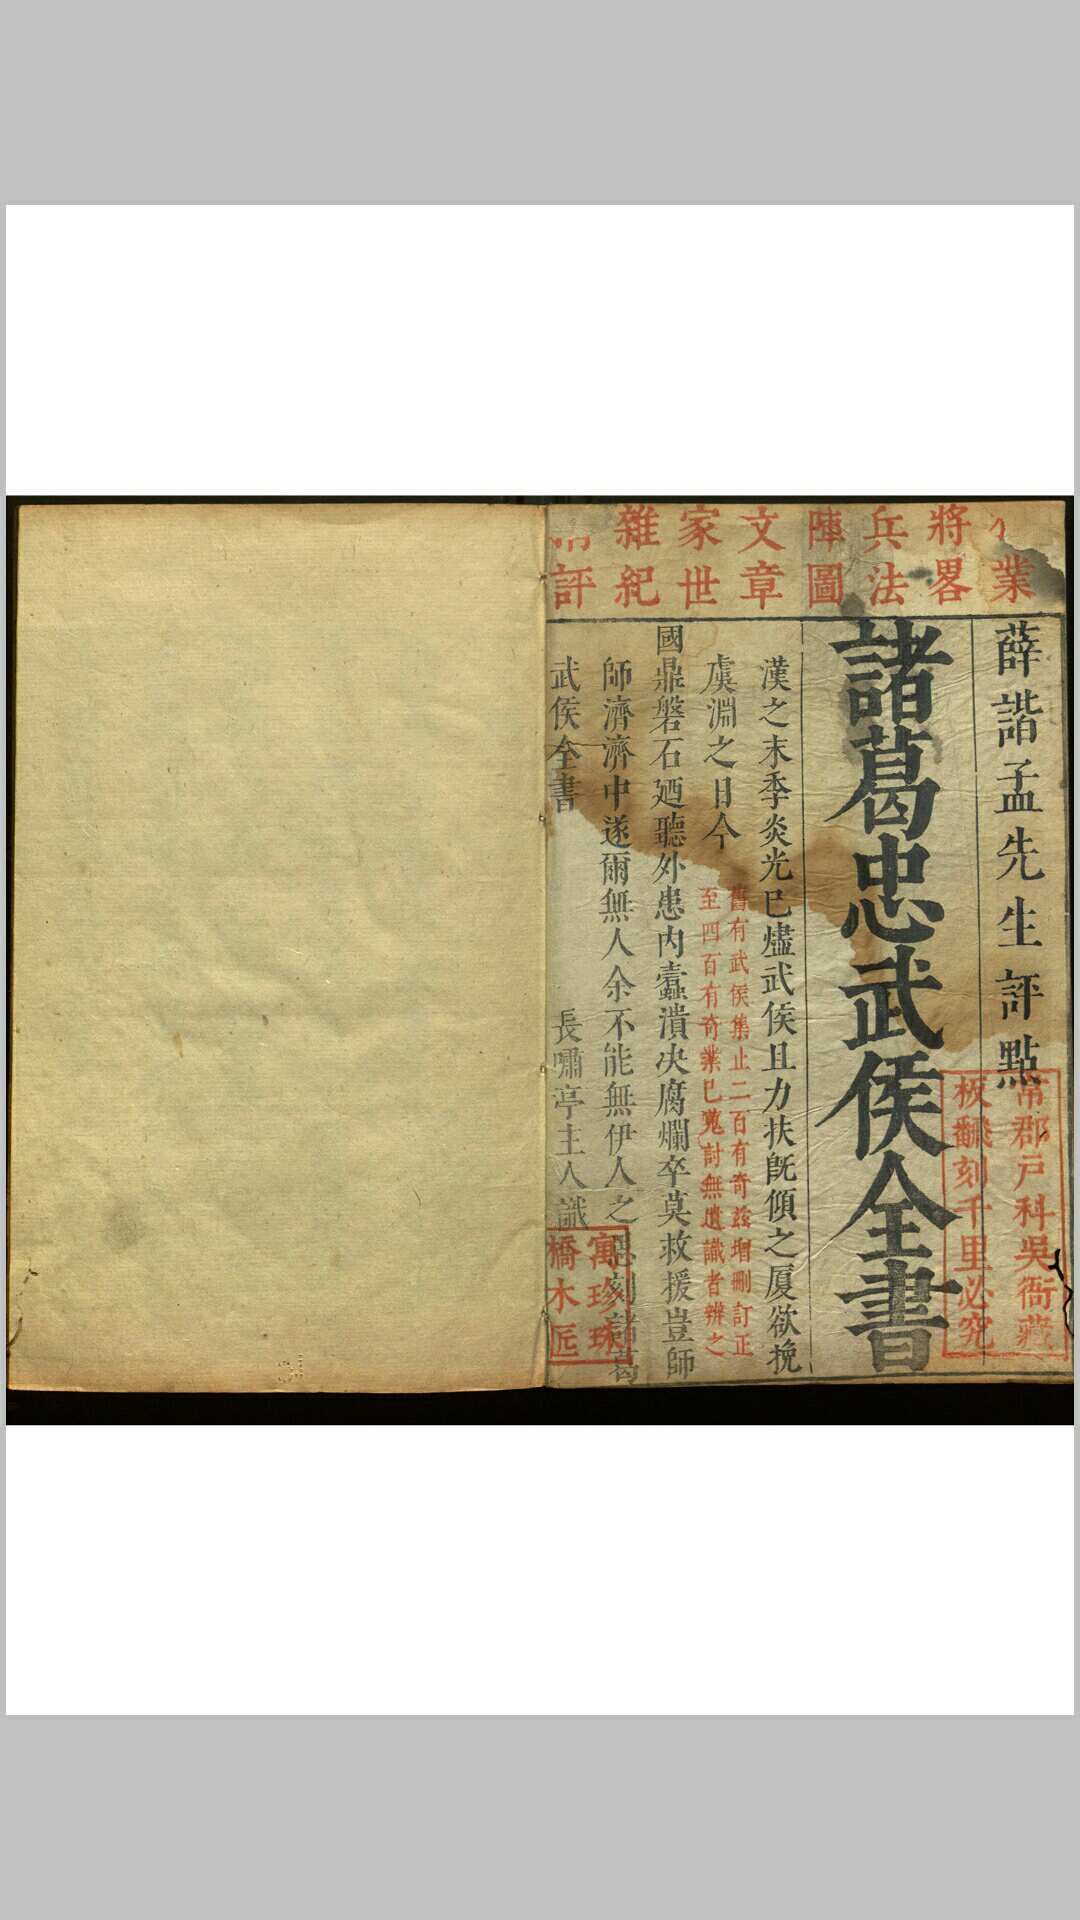 業
將畧
兵法
陣圖
文章
家世
雜紀
評
薛諧孟先生評點
諸葛忠武侯全書
常郡戸科吳衙藏
板翻刻千里必究
漢之末季炎光已燼武侯且力扶旣傾之厦欲挽
虞淵之日今
舊有武侯集止二百有奇茲增刪訂正
至四百有奇業已蒐討無遺識者辨之
國鼎磐石廼聽外患内蠹潰决腐爛卒莫救援豈師
師濟濟中遂爾無人余不能無伊人之思刻諸葛
武侯全書
長嘯亭主人識
寓珍珠
橋木匠